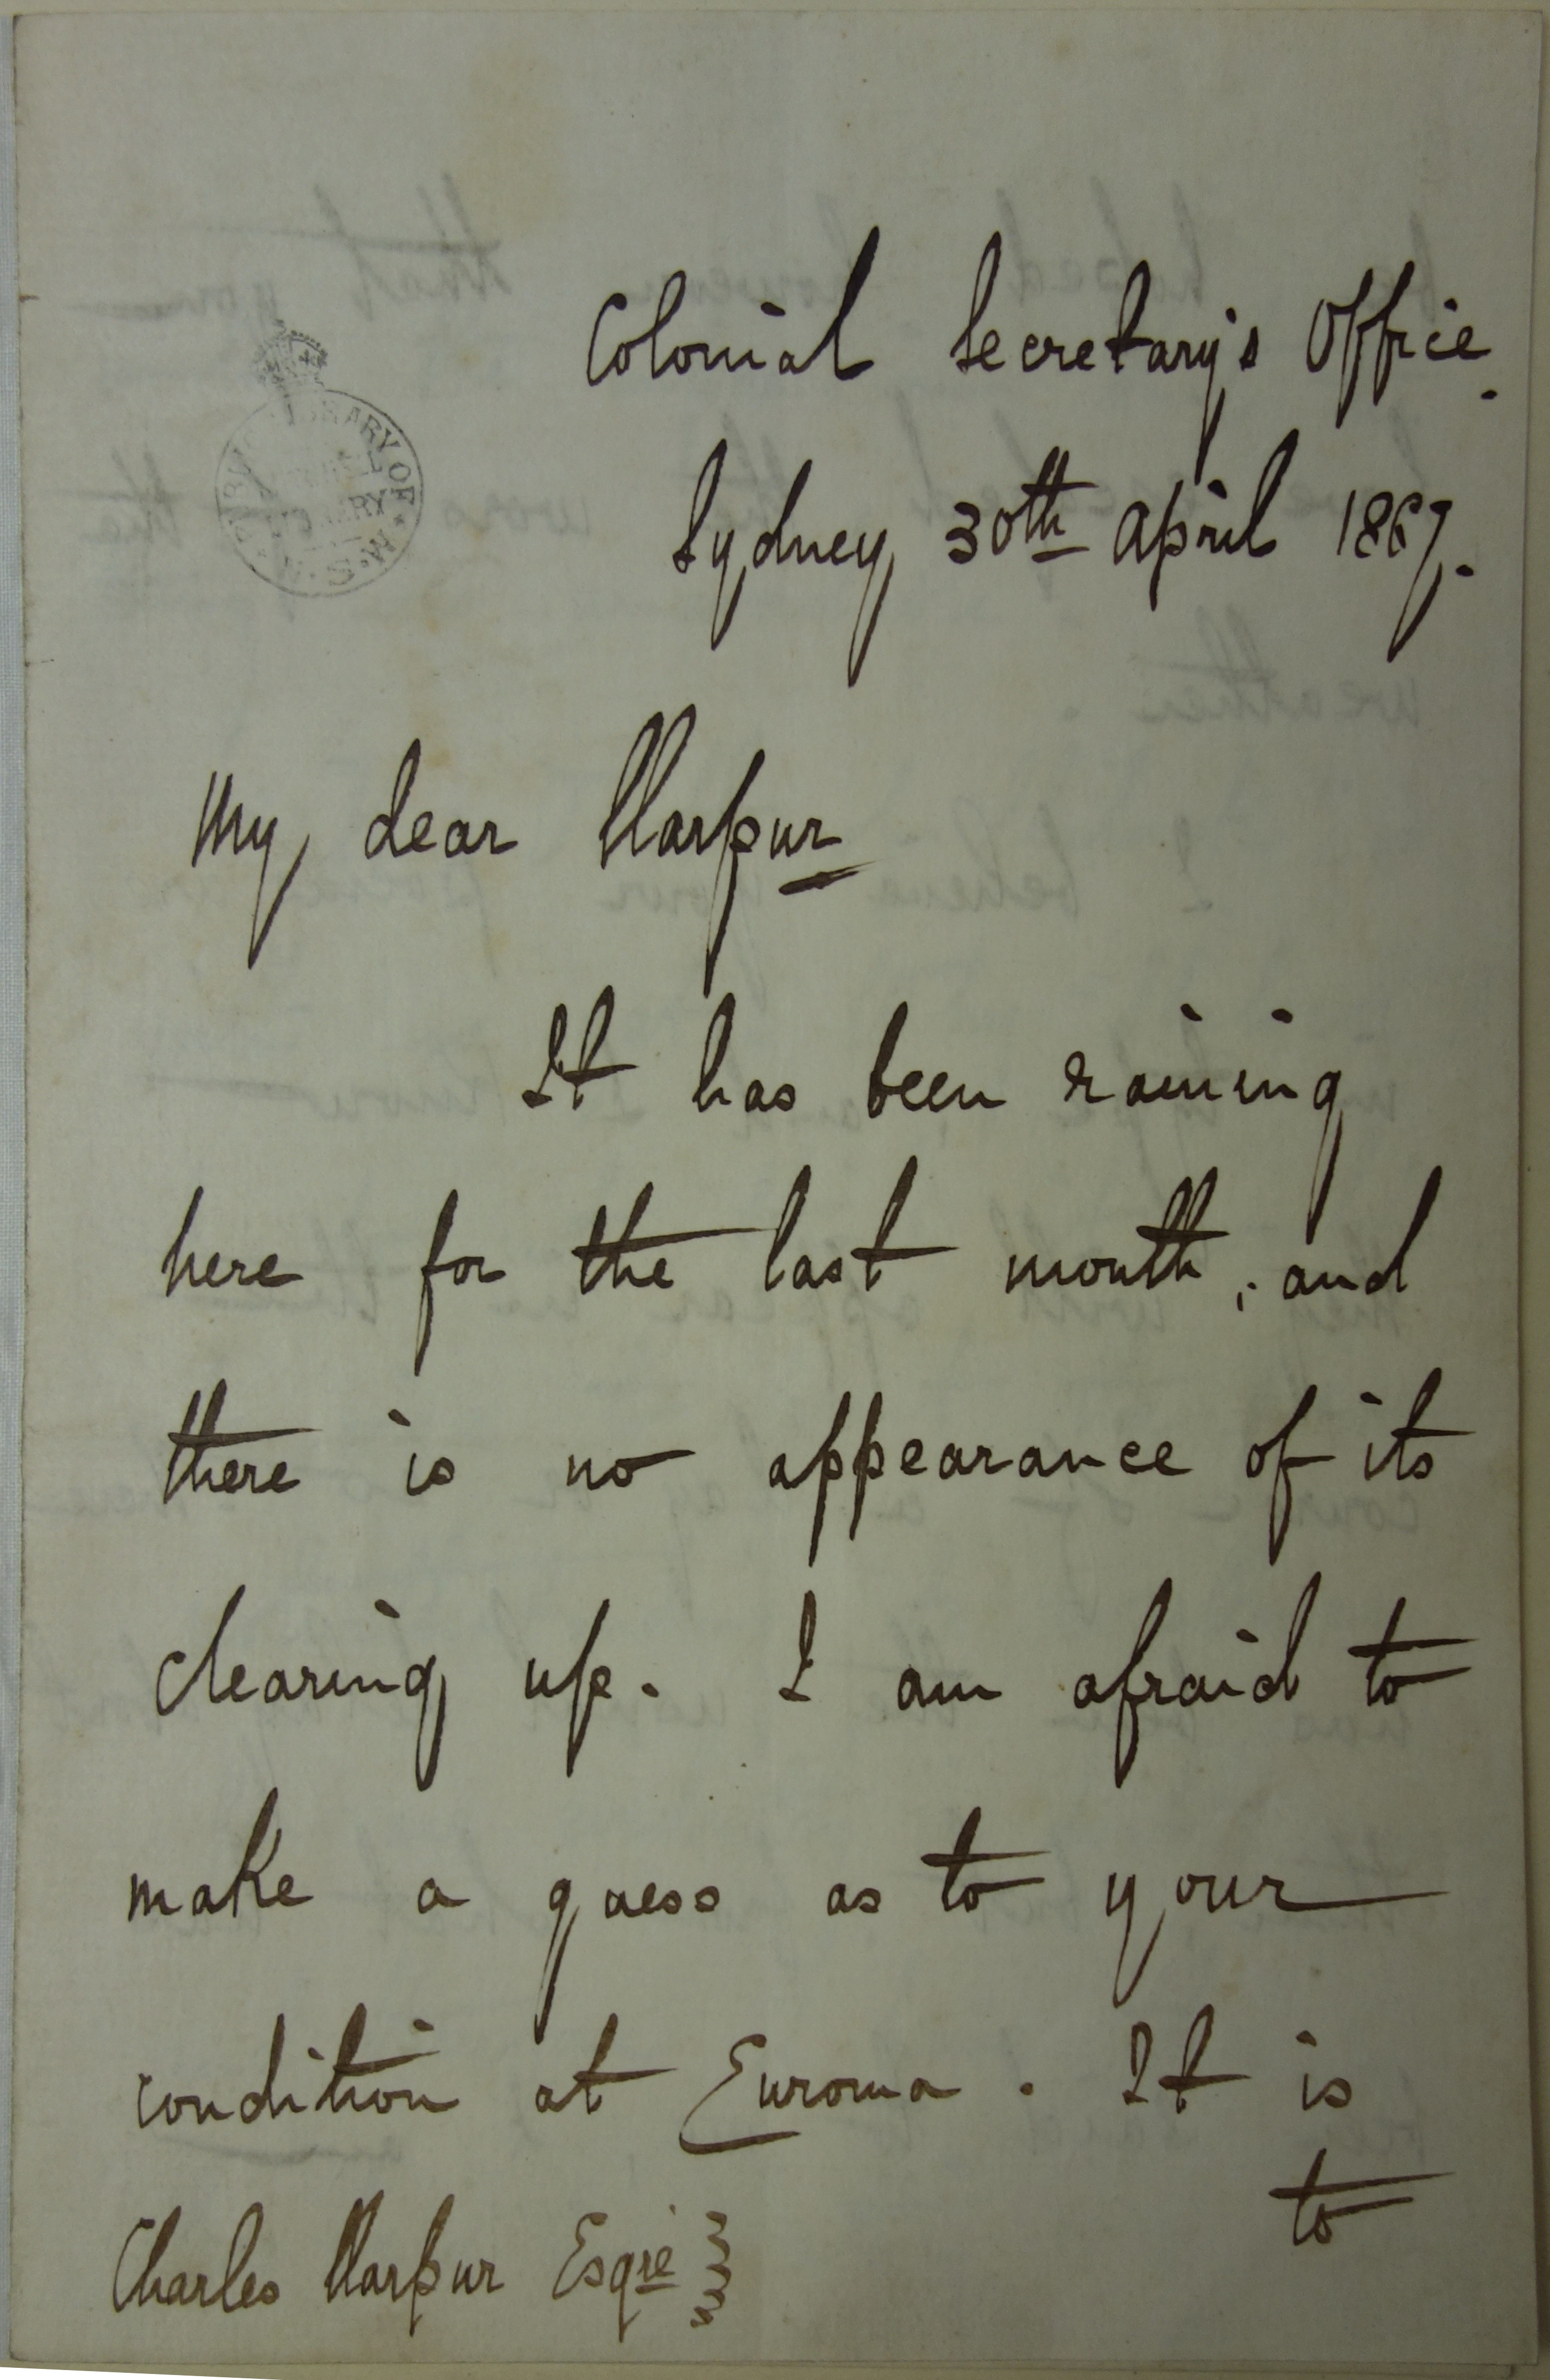 Colonial Secretary's Office.
Sydney 30th April 1867.
My dear Harpur
It has been raining
here for the last month; and
there is no appearance of its
clearing up. I am afraid to
make a guess as to your
condition at Euroma. It is
to
Charles Harpur Esqre
LIBRARY OF N.S.W.